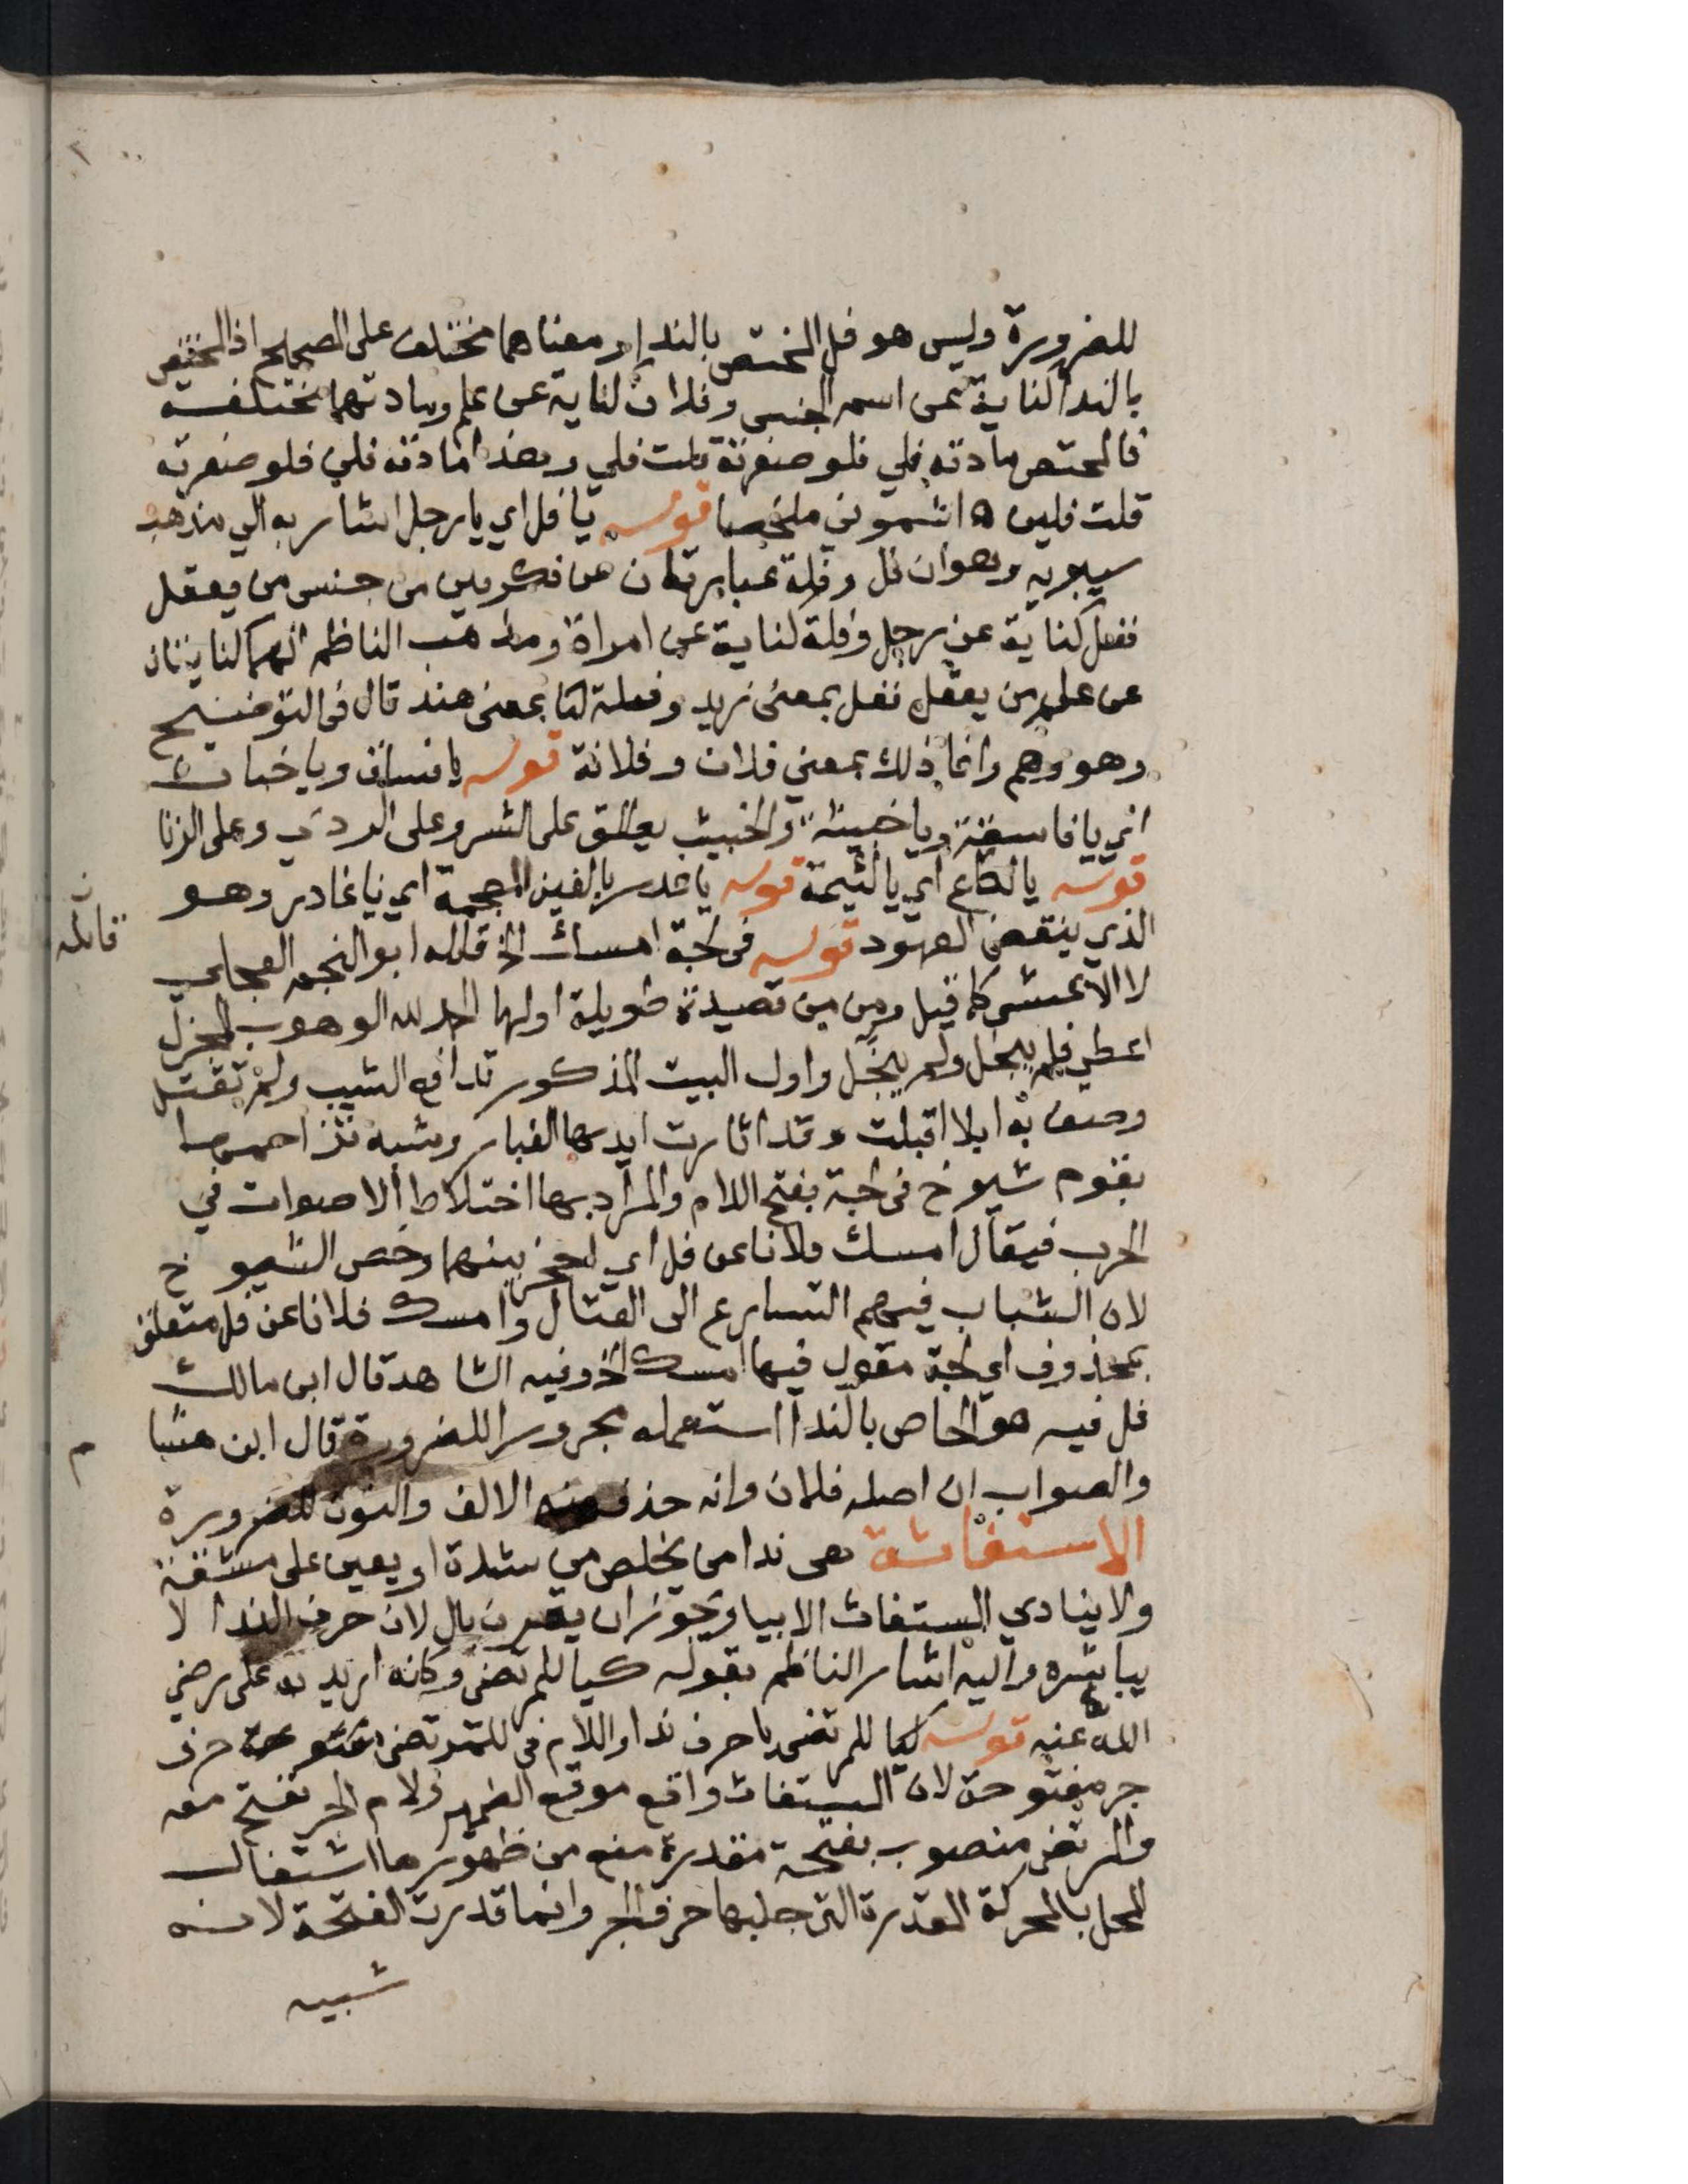 للضرورة وليس هو فل المختص بالندا ومعناهما مختلف على الصحيح اذ المختص
بالندا كناية عن اسم الجنس وفلان كناية عن علم ومادتهما مختلفة
فالمختص مادته فلي فلو صغرته قلت فلي وهذا مادته فلن فلو صغرته
قلت فلين ه اشموني ملخصا قوله يا فل اي يا رجل اشار به الي مذهب
سيبويه وهو ان فل وفلة عبارتان عن نكرتين من جنس من يعقل
ففل كناية عن رجل وفلة كناية عن امراة ومذهب الناظم انهما كنايتان
عن علم من يعقل ففل بمعنى زيد وفلة بمعنى هند قال في التوضيح
وهو وهم وانما ذلك بمعني فلان وفلانة قوله يا فساق ويا خباث
اي يا فاسقة ويا خبيثة والخبيث يطلق على الشر وعلى الردي وعلى الزنا
قوله يا لكاع اي يا لئيمة قوله يا غدر بالغين المعجمة اي يا غادر وهو
الذي ينقض العهود قوله في لجة امسك الخ قاله ابو النجم العجلي
لا الاعشى كما قيل وهي من قصيدة طويلة اولها الحمد لله الوهوب المجزل
اعطي فلم يبخل ولم يبخل واول البيت المذكور تدافع الشيب ولم تقتل
وصف به ابلا اقبلت وقد اثارت ايديها الغبار وشبه تزاحمها
بقوم شيوخ في لجة بفتح اللام والمراد بها اختلاط الاصوات في
الحرب فيقال امسك فلانا عن فل اي احجز بينهما وخص الشيوخ
لان الشباب فيهم التسارع الى القتال وامسك فلانا عن فل متعلق
بمحذوف اي لجة مقول فيها امسك الخ وفيه الشاهد قال ابن مالك
فل فيه هو الخاص بالندا استعمله مجرورا للضرورة قال ابن هشا
م
والصواب ان اصله فلان وانه حذف منه الالف والنون للضرورة
الاستغاثة هي ندا من يخلص من شدة او يعين على مشقة
ولا ينادي المستغاث الا بيا ويجوز ان يقرن بال لان حرف الندا لا
يباشره واليه اشار الناظم بقوله كيا للمرتضى وكانه اريد به على رضي
الله عنه قوله كيا للمرتضى يا حرف ندا واللام في للمرتضى حرف
جر مفتوحة لان المستغاث واقع موقع الضمير ولام الجر تفتح معه
والمرتضى منصوب بفتحة مقدرة منع من ظهورها اشتغال
المحل بالحركة المقدرة التي جلبها حرف الجر وانما قدرت الفتحة لانه
شبيه
قائله